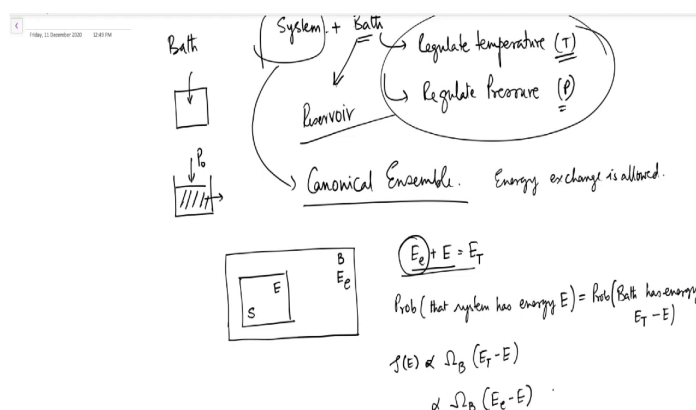 Friday, 11 December 2020 12:45 PM
Bath
System + Bath
Regulate temperature (T)
Regulate Pressure (P)
Reservoir
P₀
Canonical Ensemble. Energy exchange is allowed.
B
E
Eₑ
S
Eₑ + E = E_T
Prob (that system has energy E) = Prob (Bath has energy
E_T - E)
ρ(E) ∝ Ω_B (E_T - E)
∝ Ω_B (Eₑ - E)